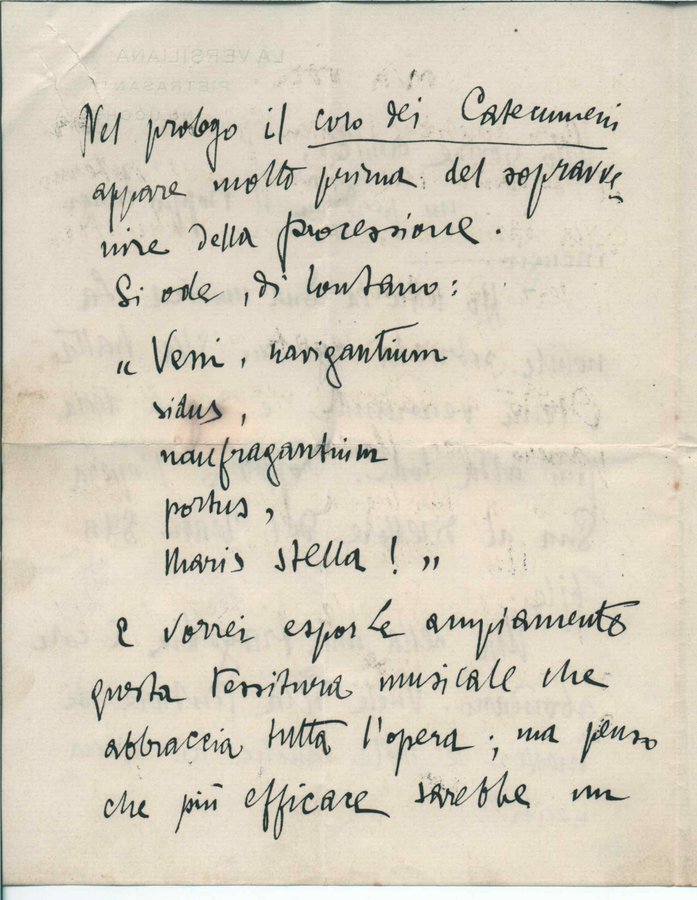 LA VERSILIANA
PIETRASANTA
Nel prologo il coro dei Catecumeni
appare molto prima del sopravve
nire della processione.
Si ode, di lontano:
„ Veni, navigantium
sidus,
naufragantium
portus,
maris stella! „
E vorrei esporLe ampiamente
questa tessitura musicale che
abbraccia tutta l'opera; ma penso
che più efficace sarebbe un